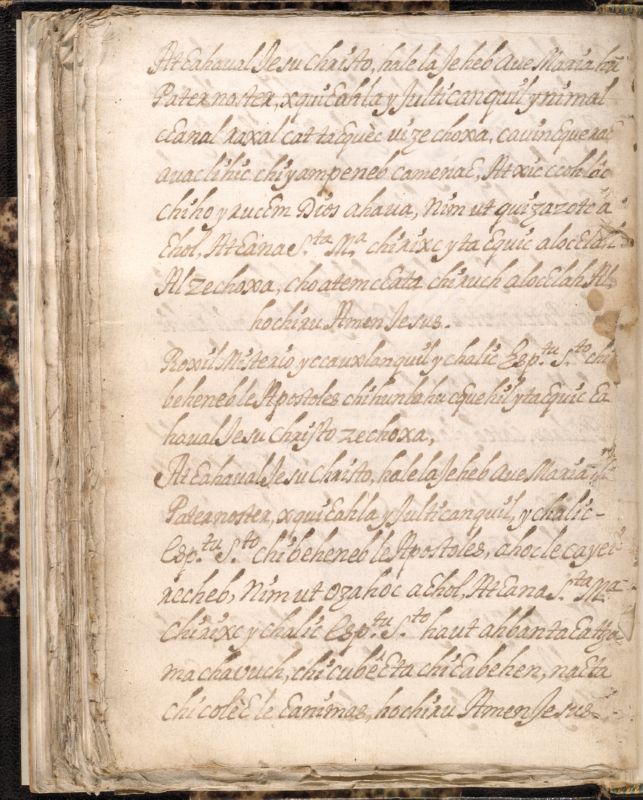 At ɛahaual Jesu Christo, hale la Jeheb Aue Maria ha
Paternoster, xquiɛahla y Julticanquil y nimal
cɛanal raxal cat taɛquèc ui zechoxa, cauinɛqueraɛ
auaclihic chiyampeneb camenaɛ, At xic ccohlòc
chiho y rucem Dios ahaua, Nim ut quizazotc a
ɛhol, At ɛàna S.ta M.a chirixc y ta ɛquic alocɛlah
Al zechoxa, choatemccɛata chiruch alocɛlah Al
hochiru Amen Jesus.
Roxil Misterio y ccauxlanquil y chalic Esp.tu S.to chi
beheneb le Apostoles chihunlahu cquehil y taɛquic ɛa
haual Jesu Christo zechoxa,
At ɛahaual Jesu Christo, hale la Jeheb Aue Maria,
Paternoster, xquiɛahla y Julticanquil, y chalic
Esp.tu S.to chi beheneb le Apostoles, ahocle cayeɛ
recheb, Nim ut ozahóc a ɛhol, At ɛana S.ta M.a
Chirixc y chalic Esp.tu S.to haut ahbanta ɛattza
ma chauuch, chicubécta chi ɛabehen, naɛta
chicoléɛ le ɛanimas, hochiru Amen Jesus